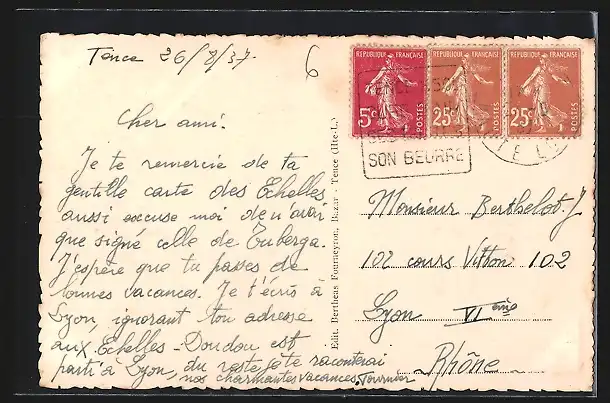 Tence 26/8/37.
6
Cher ami.
Je te remercie de ta
gentille carte des Echelles
aussi excuse moi de n'avoir
que signé celle de Tuberga.
J'espère que tu passes de
bonnes vacances. Je t'écris à
Lyon, ignorant ton adresse
aux Echelles - Doudou est
parti à Lyon, du reste je te raconterai
nos charmantes vacances. Tournier
Edit. Bertheas Fourneyron, Bazar - Tence (Hte-L.)
REPUBLIQUE FRANÇAISE
5c
POSTES
REPUBLIQUE FRANÇAISE
25c
POSTES
REPUBLIQUE FRANÇAISE
25c
POSTES
SON BEURRE
Monsieur Berthelot J
102 cours Vitton 102
Lyon VIème
Rhône